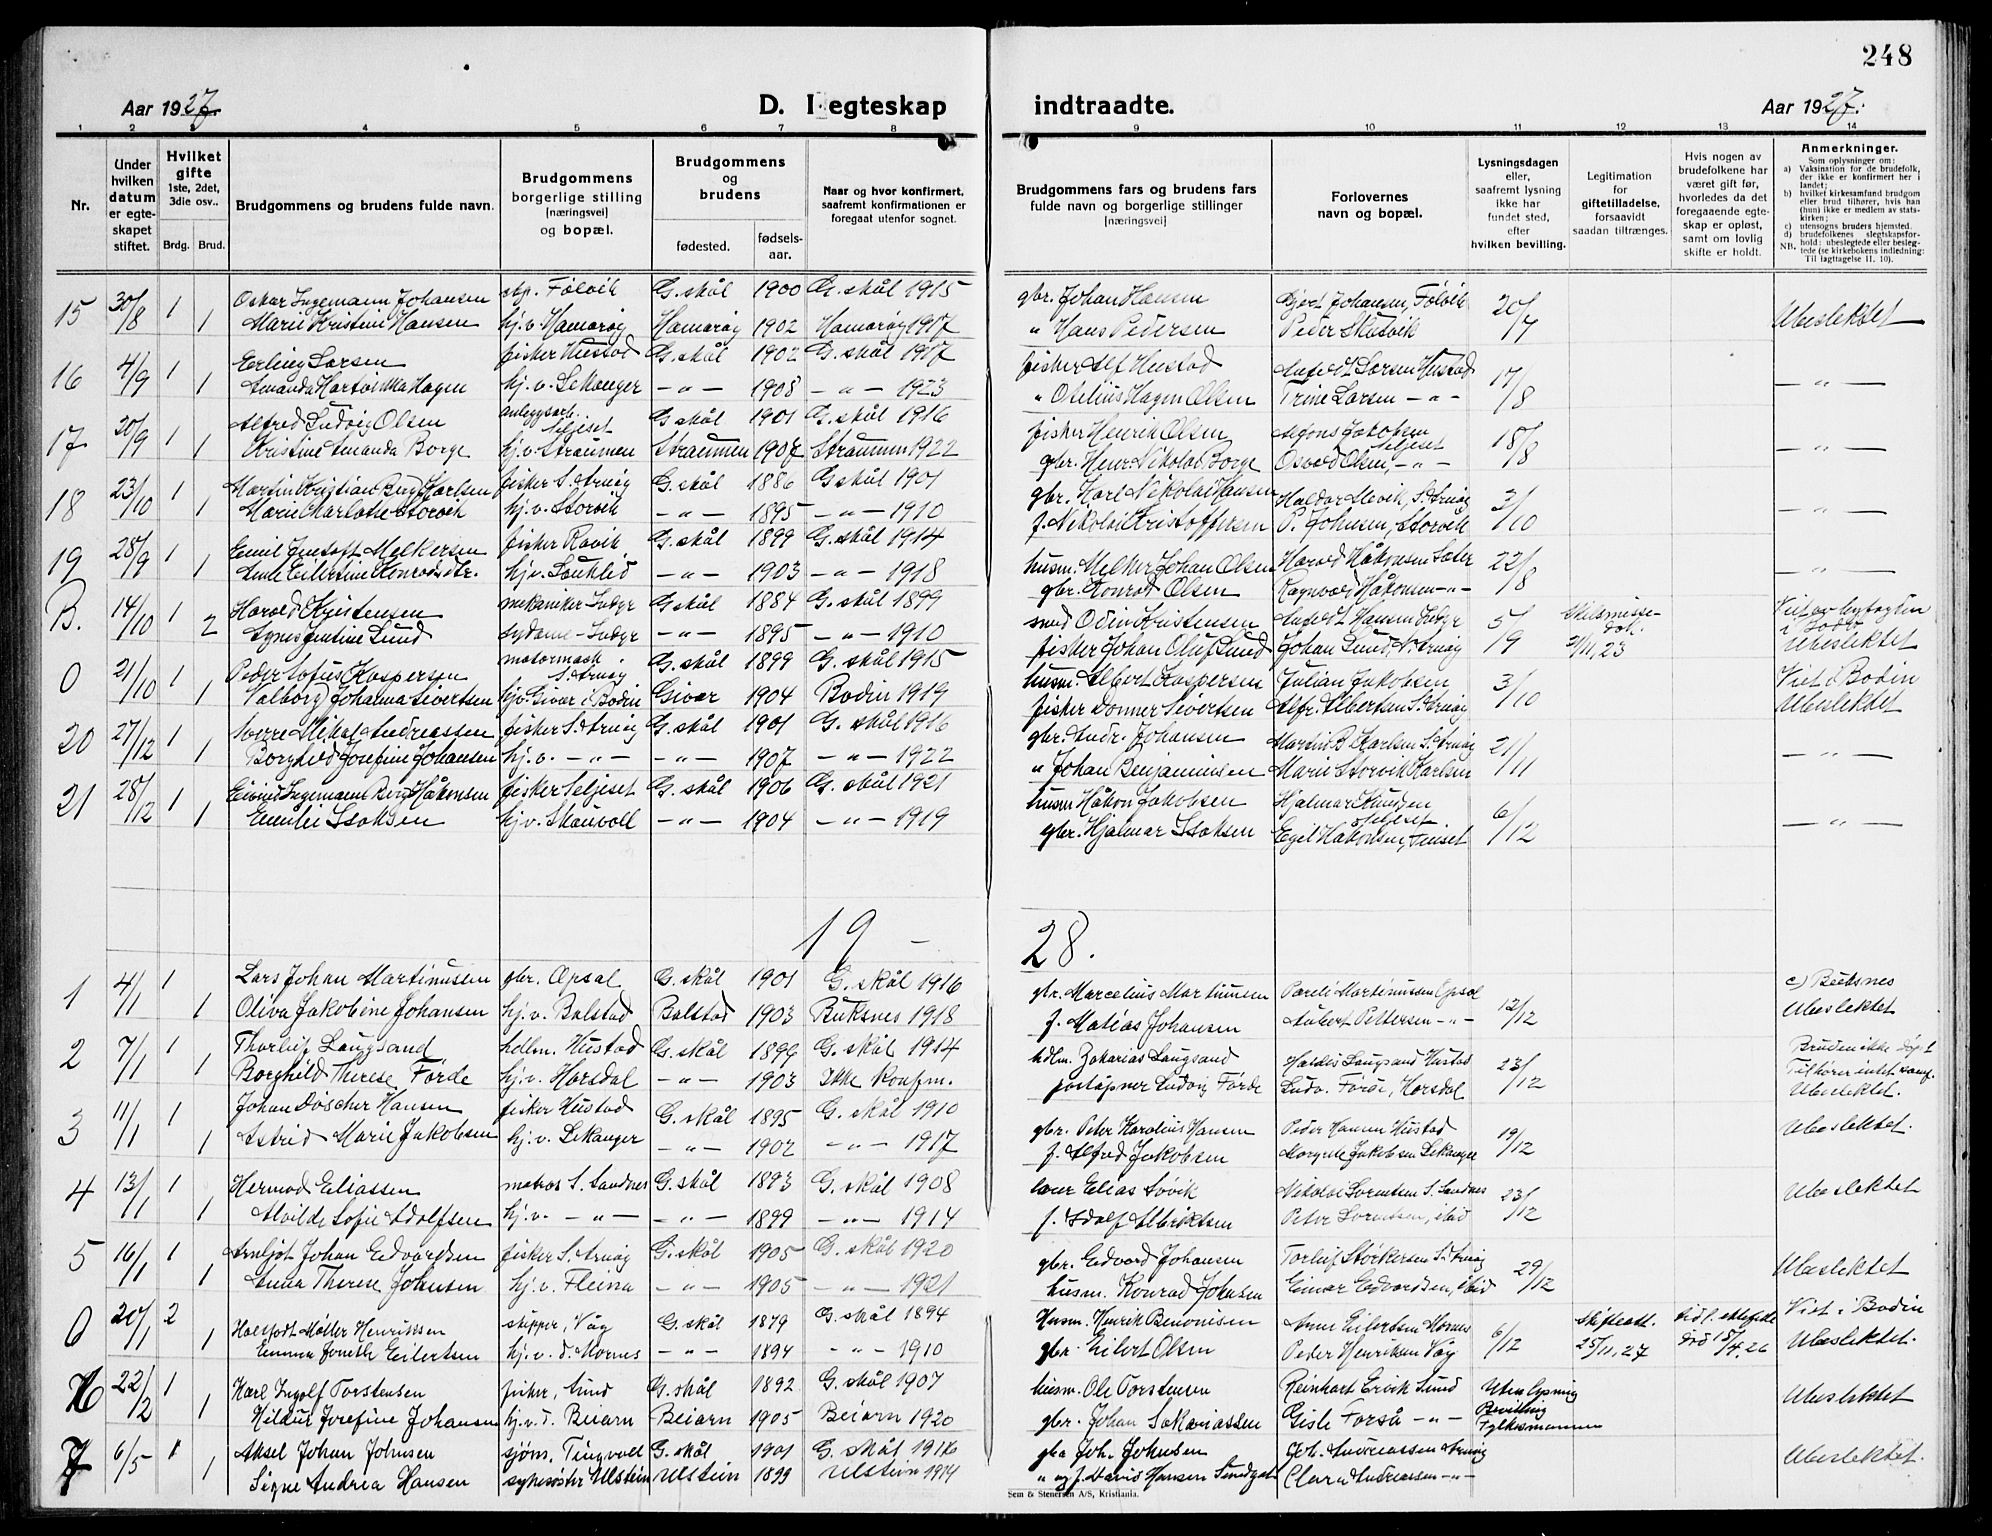 248
Aar 1927.
D. I egteskap
indtraadte.
Aar 1927.
1 2 3 4 5 6 7 8 9 10 11 12 13 14
Nr.
Under hvilken datum er egteskapet stiftet.
Hvilket gifte 1ste, 2det, 3die osv..
Brdg. Brud.
Brudgommens og brudens fulde navn.
Brudgommens borgerlige stilling [næringsvei] og bopæl.
Brudgommens og brudens
fødested.
fødselsaar.
Naar og hvor konfirmert, saafremt konfirmationen er foregaat utenfor sognet.
Brudgommens fars og brudens fars fulde navn og borgerlige stillinger [næringsvei]
Forlovernes navn og bopæl.
Lysningsdagen eller, saafremt lysning ikke har fundet sted, efter hvilken bevilling.
Legitimation for giftetilladelse, forsaavidt saadan tiltrænges.
Hvis nogen av brudefolkene har været gift før, hvorledes da det foregaaende egteskap er opløst, samt om lovlig skifte er holdt.
Anmerkninger.
Som oplysninger om:
a) Vaksination for de brudefolk, der ikke er konfirmert her i landet;
b) hvilket kirkesamfund brudgom eller brud tilhører, hvis han (hun) ikke er medlem av statskirken;
c) utensogns bruders hjemsted.
d) brudefolkenes slegtskapsforhold: ubeslegtede eller beslegtede (se kirkebokens indledning: Til Iagttagelse II. 10).
NB.
15 30/8 1 Oskar Ingemann Johansen Følvik G. skål 1900 G. skål 1915 gbr. Johan Hansen Johansen, Følvik 20/7 Ubeslektet
1 Marie Kristine Hansen hj. v. Hamarøy Hamarøy 1902 Hamarøy 1917 " Hans Pedersen Peder Skutvik
16 4/9 1 Erling Larsen fisker Hustad G. skål 1902 G. skål 1917 fisker Alf Hustad Larsen Hustad 17/8 — " —
1 Amanda Hagen hj. v. Lekanger — " — 1908 — " — 1923 " Otelius Hagen Olsen Trine Larsen — " —
17 20/9 1 Alfred Ludvig Olsen anleggsarb. Seljeset G. skål 1901 G. skål 1916 fisker Henrik Olsen Jakobsen Seljeset 18/8 — " —
1 Kristine Amanda Borge hj. v. Straumen Straumen 1907 Straumen 1922 gbr. Henr. Nikolai Borge Osvald Olsen, — " —
18 23/10 1 Martin Kristian Berg Karlsen fisker S. Arnøy G. skål 1886 G. skål 1901 gbr. Karl Nikolai Hansen Haldor Alvik, S. Arnøy 3/10 — " —
1 Marie Charlotte Storvik hj. v. Storvik — " — 1895 — " — 1910 f. Nikolai Kristoffersen P. Johnsen, Storvik
19 28/9 1 Emil Melkersen fisker Røvik G. skål 1899 G. skål 1914 husm. Melker Johan Olsen Harald Håkonsen Sæter 22/8 — " —
1 Anne Eilertine Konradsdtr. hj. v. — " — 1903 — " — 1918 gbr. Konrad Olsen Ragnvald Håkonsen — " —
B. 14/10 1 Harald Kristensen mekaniker Indyr G. skål 1884 G. skål 1899 smed Odin Kristensen Hansen Indyr 5/9 Skilsmisse- Viet av byfogden
2 Agnes Jentine Lund sydame - Indyr — " — 1895 — " — 1910 fisker Johan Oluf Lund Johan Lund, N. Arnøy 21/11, 23 i Bodø Ubeslektet
0 21/10 1 Peder Sofus Kaspersen motormask. S. Arnøy G. skål 1899 G. skål 1915 husm. Albert Kaspersen Julian Jakobsen 3/10 Viet i Bodin
1 Valborg Johanna Sivertsen hj. v. Givær i Bodin Givær 1904 Bodin 1919 fisker Donner Sivertsen Alfr. Albertsen S. Arnøy Ubeslektet
20 27/12 1 Sverre Mikal Andreassen fisker S. Arnøy G. skål 1901 G. skål 1916 gbr. Andr. Johansen Martin B. Karlsen S. Arnøy 21/11 — " —
1 Borghild Josefine Johansen hj. v. — " — — " — 1907 — " — 1922 " Johan Benjaminsen Marie Storvik Karlsen
21 28/12 1 Eivind Ingemann Berg Håkonsen fisker Seljeset G. skål 1906 G. skål 1921 husm Håkon Jakobsen Hjalmar Knudsen Seljeset 6/12 — " —
1 Emilie Isaksen hj. v. Skauvoll — " — 1904 — " — 1919 gbr. Hjalmar Isaksen Egil Håkonsen,
19 — 28.
1 4/1 1 Lars Johan Martinussen gbr. Opsal G. skål 1901 G. skål 1916 gbr. Marcelius Martinussen Martinussen Opsal 12/12 c) Buksnes
1 Oliva Jakobine Johansen hj. v. Balstad Balstad 1903 Buksnes 1918 f. Matias Johansen Aubert Pettersen — " — Ubeslektet
2 7/1 1 Thorleif Laugsand hdlm. Hustad G. skål 1899 G. skål 1914 hdlm. Zakarias Laugsand Haldis Laugsand Hustad 23/12 Bruden ikke døpt
1 Borghild Therese Førde hj. v. Horsdal — " — 1903 Ikke konfrm. poståpner Ludvig Førde Ludv. Førde, Horsdal Tilhører intet samf. Ubeslektet.
3 11/1 1 Johan Døscher Hansen fisker Hustad G. skål 1895 G. skål 1910 gbr. Peter Karolius Hansen Peder Hansen Hustad 19/12 Ubeslektet.
1 Astrid Marie Jakobsen hj. v. Lekanger — " — 1902 — " — 1917 f. Alfred Jakobsen Margrete Jakobsen Lekanger
4 13/1 1 Hermod Eliassen matros S. Sandnes G. skål 1893 G. skål 1908 lærer Elias Søvik Nikolai Lorentsen S. Sandnes 23/12 Ubeslektet
1 Alvilde Sofie Adolfsen hj. v. — " — — " — 1899 — " — 1914 f. Adolf Albriktsen Peter Lorentsen, ibid
5 16/1 1 Arnljot Johan Edvardsen fisker S. Arnøy G. skål 1905 G. skål 1920 gbr. Edvard Johansen Torleif Størkersen S. Arnøy 29/12 Ubeslektet
1 Anna Therese Johnsen hj. v. Fleina — " — 1905 — " — 1921 husm. Konrad Johnsen Einar Edvardsen, ibid
0 20/1 2 Møller Henriksen skipper, Våg G. skål 1879 G. skål 1894 Husm. Henrik Benonisen Anne Eilertsen Mornes 6/12 Skifteatt. tidl. ektefelle Viet i Bodin
1 Emma Eilertsen hj. v. d. Mornes — " — 1894 — " — 1910 gbr. Eilert Olsen Peder Henriksen Våg 25/11, 27 død 15/4. 26 Ubeslektet.
22/2 1 Karl Ingolf Torstensen fisker, Sund G. skål 1892 G. skål 1907 husm. Ole Torstensen Reinhart Ervik Sund Uten lysning Ubeslektet
1 Hildur Josefine Johansen hj. v. d. Beiarn Beiarn 1905 Beiarn 1920 gbr. Johan Sakariassen Gisle Forså — " — Bevilling Fylkesmannen
7 6/5 1 Aksel Johan Johnsen sjøm. Tingvoll G. skål 1901 G. skål 1916 gbr Joh. Johnsen Joh. Andreassen Arnøy Ubeslektet.
1 Signe Andrea Hansen Ulstein Ulstein 1899 Ulstein 1914 " og f. David Hansen Clara Andreassen — " —
Sem & Stenersen A/S, Kristiania.